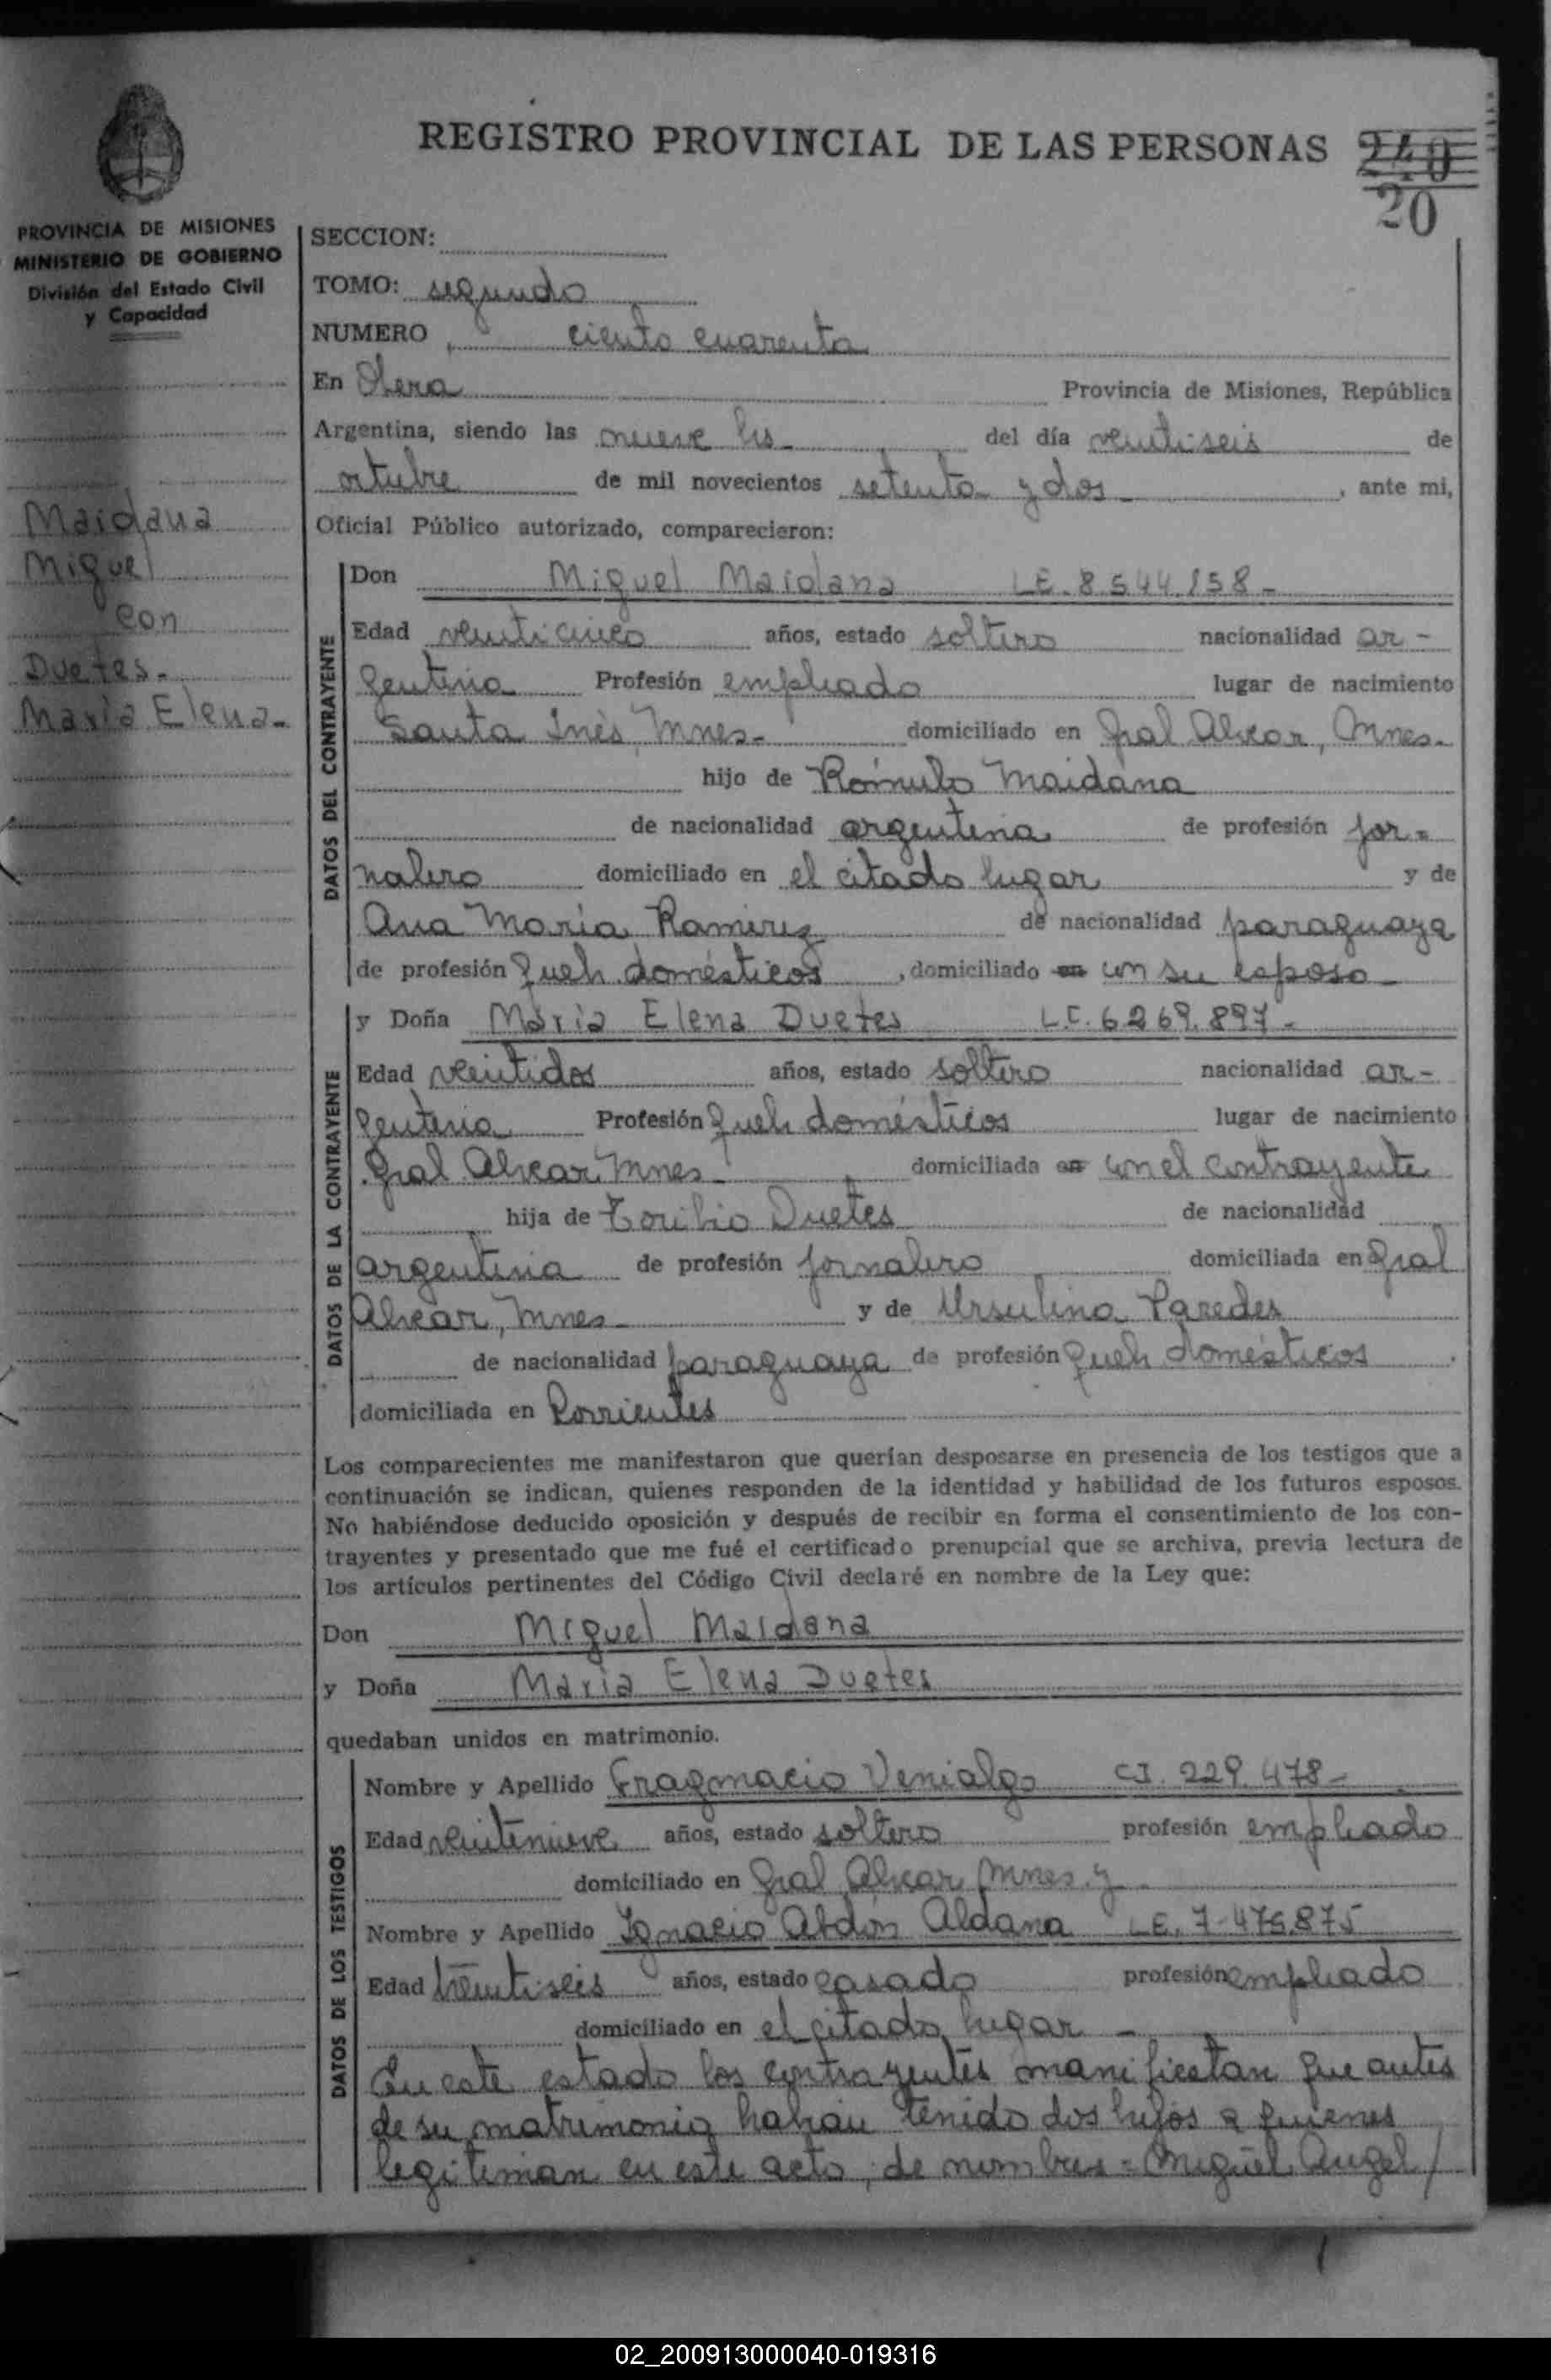 REGISTRO PROVINCIAL DE LAS PERSONAS
240
20
PROVINCIA DE MISIONES
MINISTERIO DE GOBIERNO
División del Estado Civil
y Capacidad
Maidana
Miguel
con
Duetes.-
María Elena.-
SECCION:
TOMO: segundo
NUMERO ciento cuarenta
En Obera Provincia de Misiones, República
Argentina, siendo las nueve hs del día veintiseis de
octubre de mil novecientos setenta y dos , ante mi,
Oficial Público autorizado, comparecieron:
DATOS DEL CONTRAYENTE
Don Miguel Maidana LE. 8.544.158-
Edad veinticinco años, estado soltero nacionalidad ar-
gentina Profesión empleado lugar de nacimiento
Santa Inés, Mnes.- domiciliado en Gral Alvear, Mnes.
hijo de Rómulo Maidana
de nacionalidad argentina de profesión jor-
nalero domiciliado en el citado lugar y de
Ana María Ramirez de nacionalidad paraguaya
de profesión queh. domésticos , domiciliado en con su esposo
DATOS DE LA CONTRAYENTE
y Doña María Elena Duetes L.C. 6.269.897-
Edad veintidos años, estado soltero nacionalidad ar-
gentina Profesión queh domésticos lugar de nacimiento
Gral Alvear, Mnes domiciliada en con el contrayente
hija de Toribio Duetes de nacionalidad
argentina de profesión jornalero domiciliada en Gral
Alvear, Mnes y de Ursulina Paredes
de nacionalidad paraguaya de profesión queh domésticos
domiciliada en Corrientes
Los comparecientes me manifestaron que querían desposarse en presencia de los testigos que a
continuación se indican, quienes responden de la identidad y habilidad de los futuros esposos.
No habiéndose deducido oposición y después de recibir en forma el consentimiento de los con-
trayentes y presentado que me fué el certificado prenupcial que se archiva, previa lectura de
los artículos pertinentes del Código Civil declaré en nombre de la Ley que:
Don Miguel Maidana
y Doña María Elena Duetes
quedaban unidos en matrimonio.
DATOS DE LOS TESTIGOS
Nombre y Apellido Fragmacio Venialgo CI. 229.478-
Edad veintenueve años, estado soltero profesión empleado
domiciliado en Gral Alvear, Mnes. y
Nombre y Apellido Ignacio Abdón Aldana LE. 7.475.875
Edad treintiseis años, estado casado profesión empleado
domiciliado en el citado lugar -
En este estado los contrayentes manifiestan que antes
de su matrimonio habian tenido dos hijos a quienes
legitiman en este acto, de nombres = Miguel Angel /
02_200913000040-019316